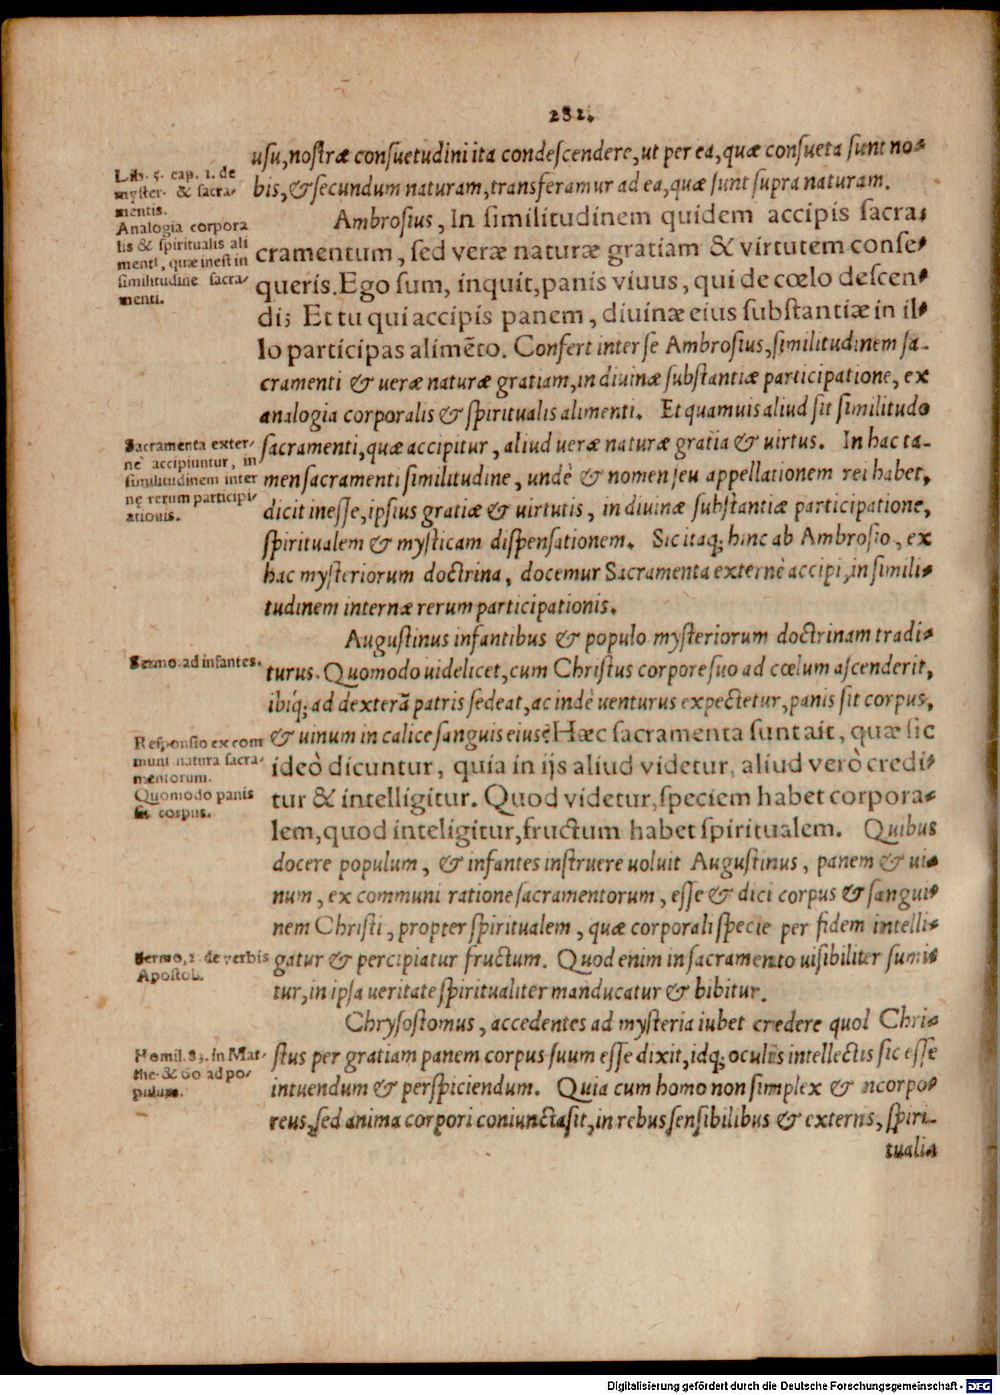 282.
usu, nostræ consuetudini ita condescendere, ut per ea, quæ consueta sunt no-
bis, & secundum naturam, transferamur ad ea, quæ sunt supra naturam.
Lib. 5. cap. 1. de
myster. & sacra-
mentis.
Analogia corpora
lis & spiritualis ali
menti, quæ inest in
similitudine sacra-
menti.
Ambrosius, In similitudinem quidem accipis sacra-
cramentum, sed veræ naturæ gratiam & virtutem conse-
queris. Ego sum, inquit, panis viuus, qui de cœlo descen-
di; Et tu qui accipis panem, diuinæ eius substantiæ in il-
lo participas alimẽto. Confert inter se Ambrosius, similitudinem sa-
cramenti & ueræ naturæ gratiam, in diuinæ substantiæ participatione, ex
analogia corporalis & spiritualis alimenti. Et quamuis aliud sit similitudo
sacramenti, quæ accipitur, aliud ueræ naturæ gratia & uirtus. In hac ta-
men sacramenti similitudine, undè & nomen seu appellationem rei habet,
dicit inesse, ipsius gratiæ & uirtutis, in diuinæ substantiæ participatione,
spiritualem & mysticam dispensationem. Sic itaq; hinc ab Ambrosio, ex
hac mysteriorum doctrina, docemur Sacramenta externè accipi, in simili-
tudinem internæ rerum participationis.
Sacramenta exter-
nè accipiuntur, in
similitudinem inter
nę rerum participi-
ationis.
Augustinus infantibus & populo mysteriorum doctrinam tradi-
turus. Quomodo uidelicet, cum Christus corpore suo ad cœlum ascenderit,
ibiq; ad dexterã patris sedeat, ac indè uenturus expectetur, panis sit corpus,
& uinum in calice sanguis eius? Hæc sacramenta sunt ait, quæ sic
ideò dicuntur, quia in ijs aliud videtur, aliud verò credi-
tur & intelligitur. Quod videtur, speciem habet corpora-
lem, quod inteligitur, fructum habet spiritualem. Quibus
docere populum, & infantes instruere uoluit Augustinus, panem & ui-
num, ex communi ratione sacramentorum, esse & dici corpus & sangui-
nem Christi, propter spiritualem, quæ corporali specie per fidem intelli-
gatur & percipiatur fructum. Quod enim in sacramento uisibiliter sumi-
tur, in ipsa ueritate spiritualiter manducatur & bibitur.
Sermo. ad infantes.
Responsio ex com
muni natura sacra-
mentorum.
Quomodo panis
sit corpus.
Sermo, 2. de verbis
Apostol.
Chrysostomus, accedentes ad mysteria iubet credere quol Chri-
stus per gratiam panem corpus suum esse dixit, idq; oculis intellectis sic esse
intuendum & perspiciendum. Quia cum homo non simplex & ncorpo-
reus, sed anima corpori coniuncta sit, in rebus sensibilibus & externis, spiri-
Homil. 83. in Mat-
the. & 60 ad po-
pulum.
tuali-
Digitalisierung gefördert durch die Deutsche Forschungsgemeinschaft - DFG